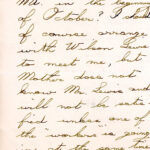 in the beginning
of October? I should
of course arrange
with Wilson Lewis
to meet me, but
Mother does not
know Mr. Lewis and
will not be satis-
fied unless one of
the workers is going
at the same time